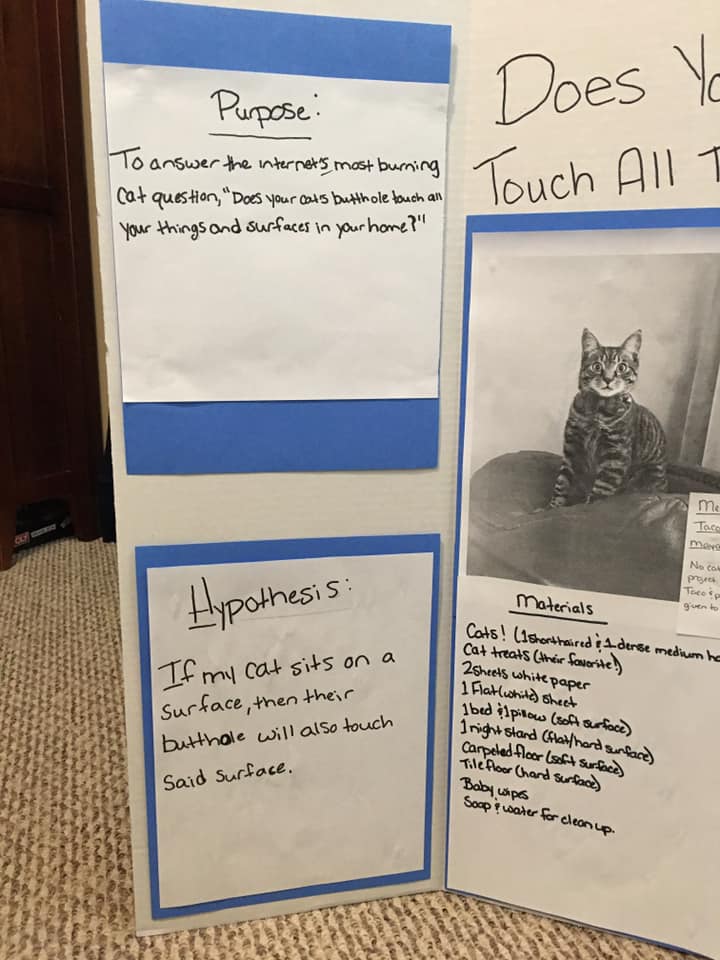 Purpose:
To answer the internet's most burning
cat question, "Does your cats butthole touch all
your things and surfaces in your home?"
Hypothesis:
If my cat sits on a
surface, then their
butthole will also touch
said surface.
Does Yo
Touch All T
Me
Taco
meers
No cat
project
Taco &
given to
Materials
Cats! (1 shorthaired & 1 dense medium ha
Cat treats (their favorite!)
2 sheets white paper
1 Flat (white) sheet
1 bed & 1 pillow (soft surface)
1 night stand (flat/hard surface)
Carpeted floor (soft surface)
Tile floor (hard surface)
Baby wipes
Soap & water for clean up.